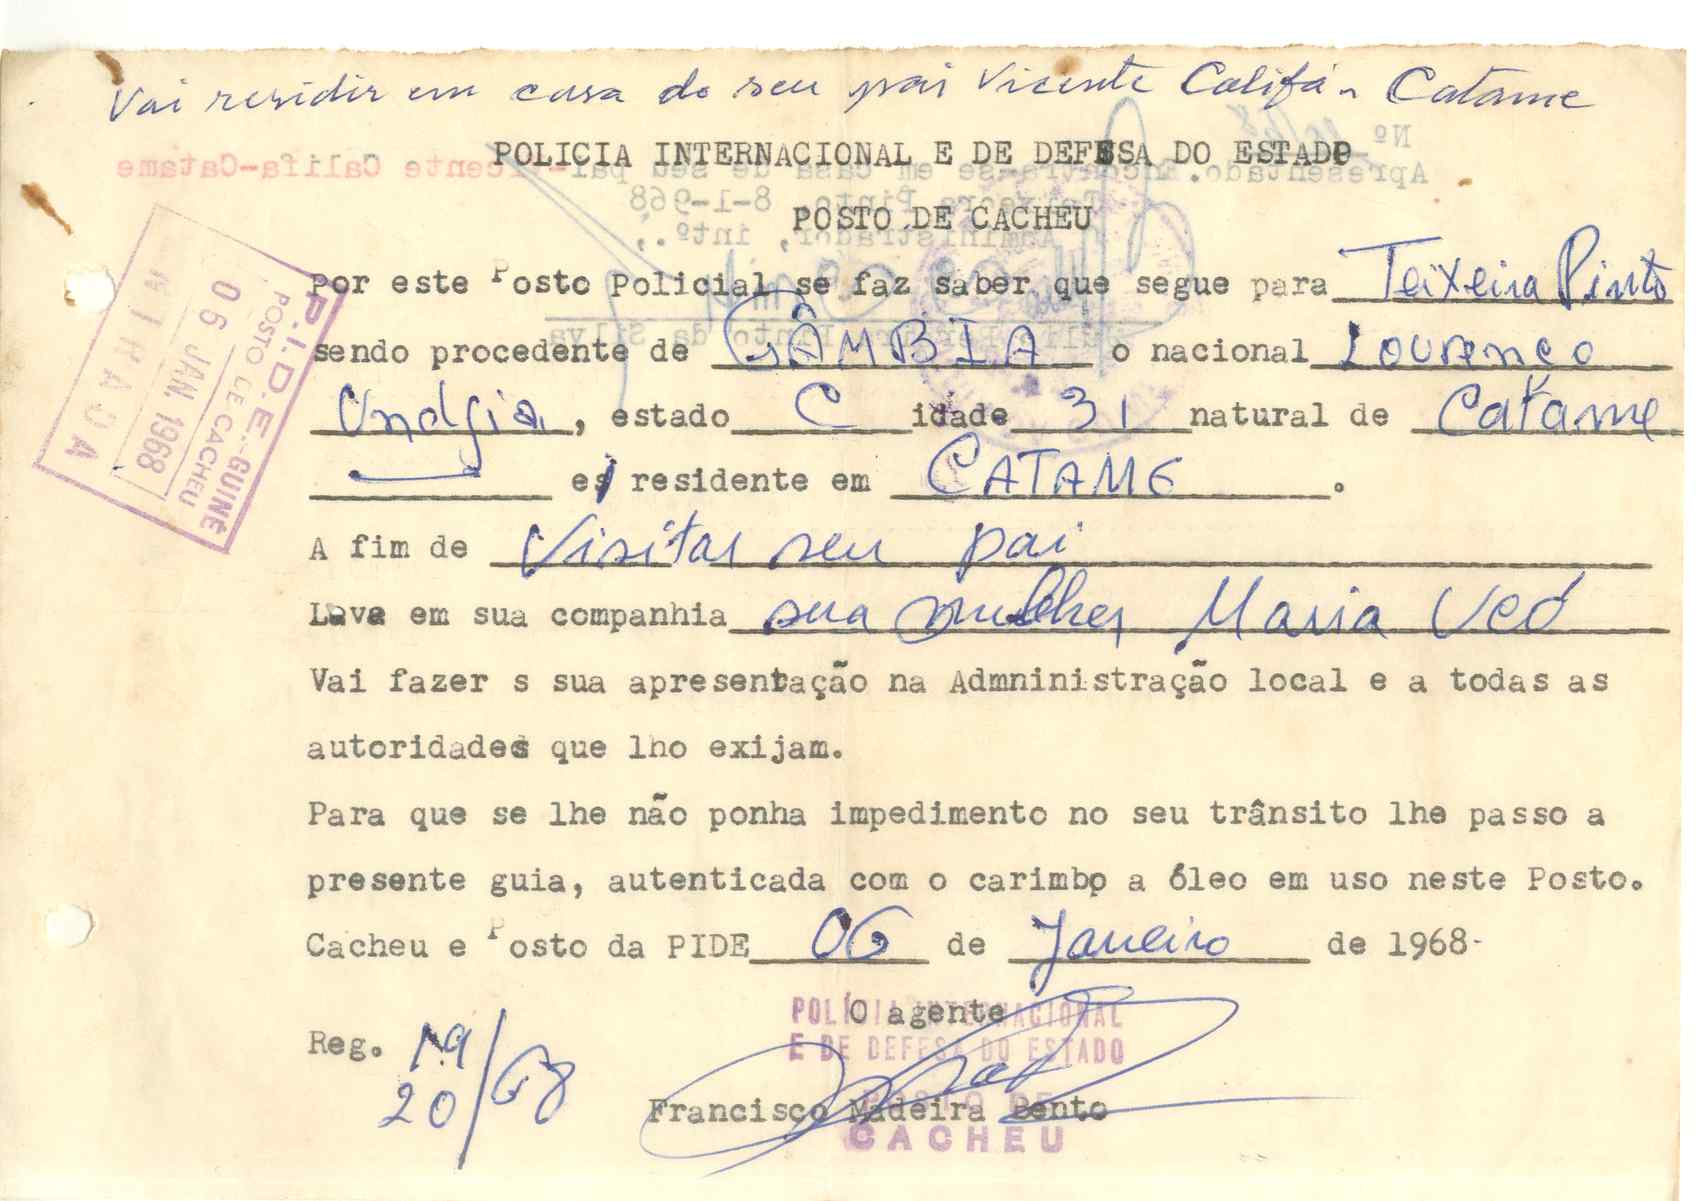 Vai residir em casa do seu pai Vicente Califá - Catame
POLICIA INTERNACIONAL E DE DEFESA DO ESTADO
POSTO DE CACHEU
Por este Posto Policial se faz saber que segue para Teixeira Pinto
sendo procedente de GÂMBIA o nacional Lourenço
, estado C idade 31 natural de Catame
es residente em CATAME.
A fim de Visitar seu pai
Leva em sua companhia sua mulher Maria
Vai fazer s sua apresentação na Admninistração local e a todas as
autoridades que lho exijam.
Para que se lhe não ponha impedimento no seu trânsito lhe passo a
presente guia, autenticada com o carimbo a óleo em uso neste Posto.
Cacheu e Posto da PIDE 06 de Janeiro de 1968-
O agente
Reg. 19
20/68
Francisco Madeira Bento
P.I.D.E.-GUINÉ
POSTO DE CACHEU
06 JAN. 1968
POLÍCIA INTERNACIONAL
E DE DEFESA DO ESTADO
POSTO DE
CACHEU
Nº
Apresentado. Encontra-se em casa de seu pai-Vicente Califa-Catame
Teixeira Pinto, 8-1-968
Administrador, intº.,